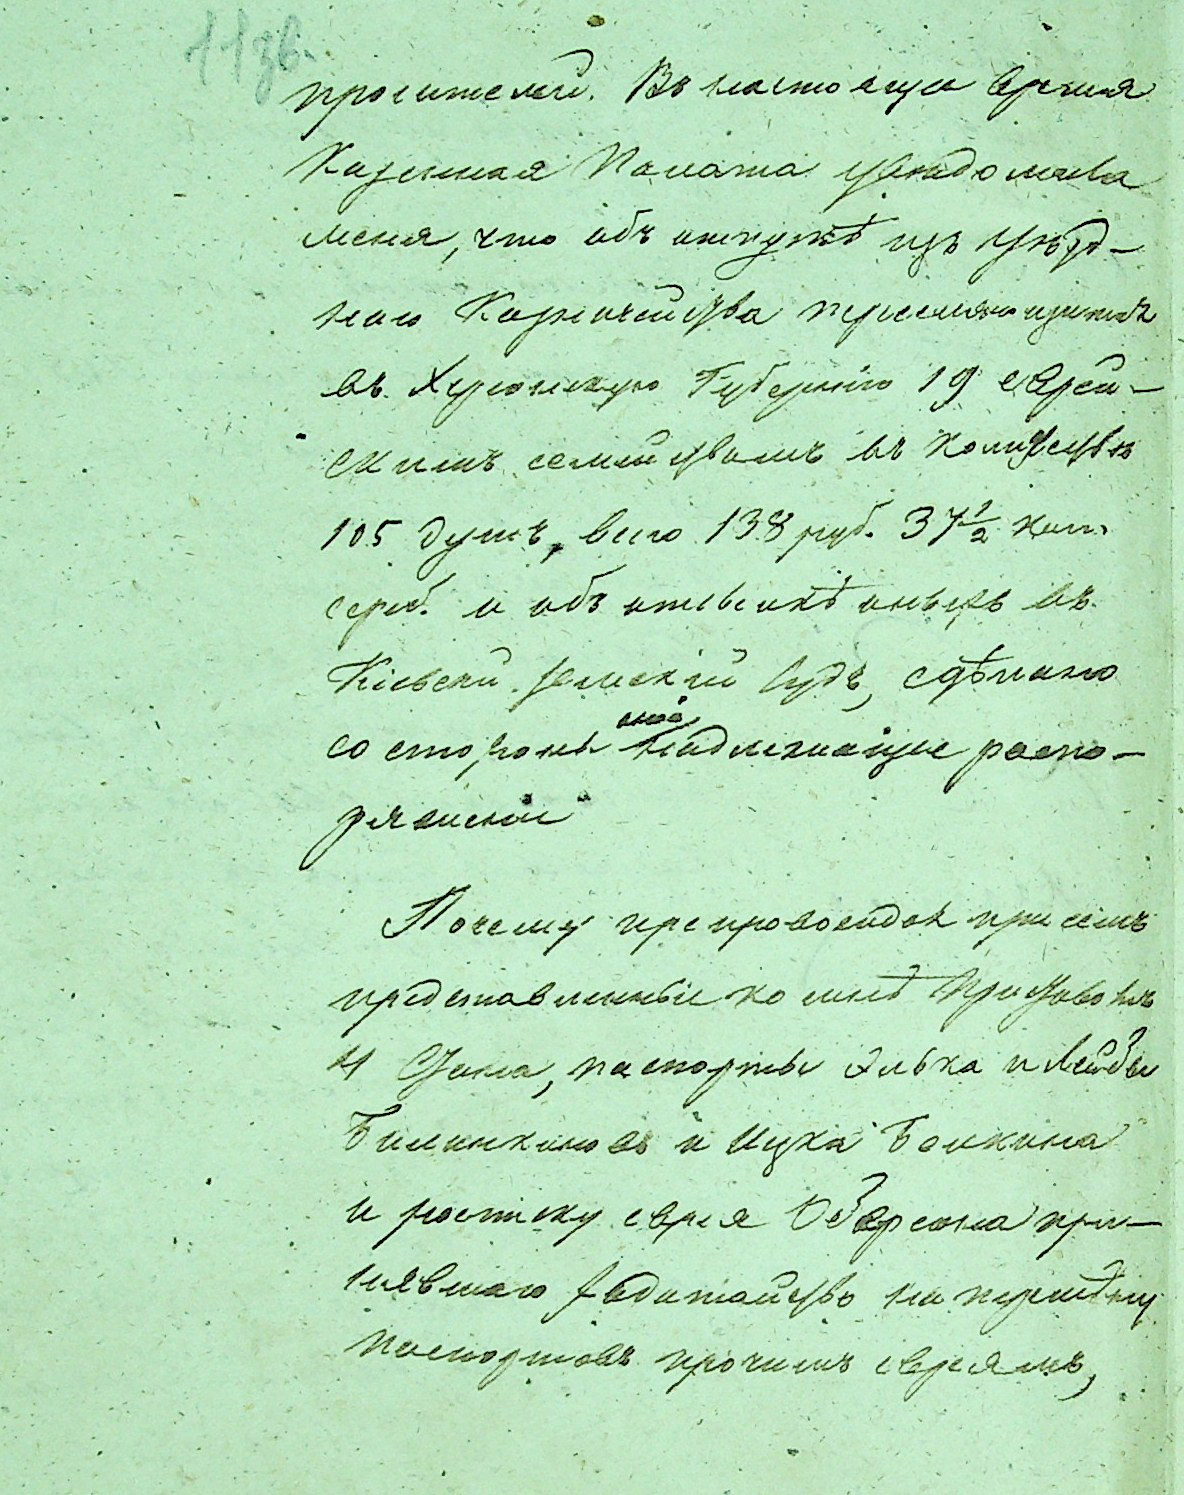 11 зв.
просителей. Въ настоящее время
Казенная Палата уведомива
меня, что объ отпускѣ изъ Уѣзд-
наго Казначейства переселяющимся
въ Херсонскую Губернію 19 еврей-
скимъ семействамъ въ количествѣ
105 душъ, всего 138 руб. 37 1/2 коп.
сереб. и объ отсылкѣ оныхъ въ
Кіевскій Земскій Судъ, сдѣлано
со стороны оной надлежащее распо-
ряженіе
Почему препровождая при семъ
представленные ко мнѣ Приставомъ
4 Стана, паспорты Элька и Лейбы
Билинкиновъ и Ицка
и росписку еврея при-
нявшаго ходатайство на перемѣну
паспортовъ прочимъ евреямъ,